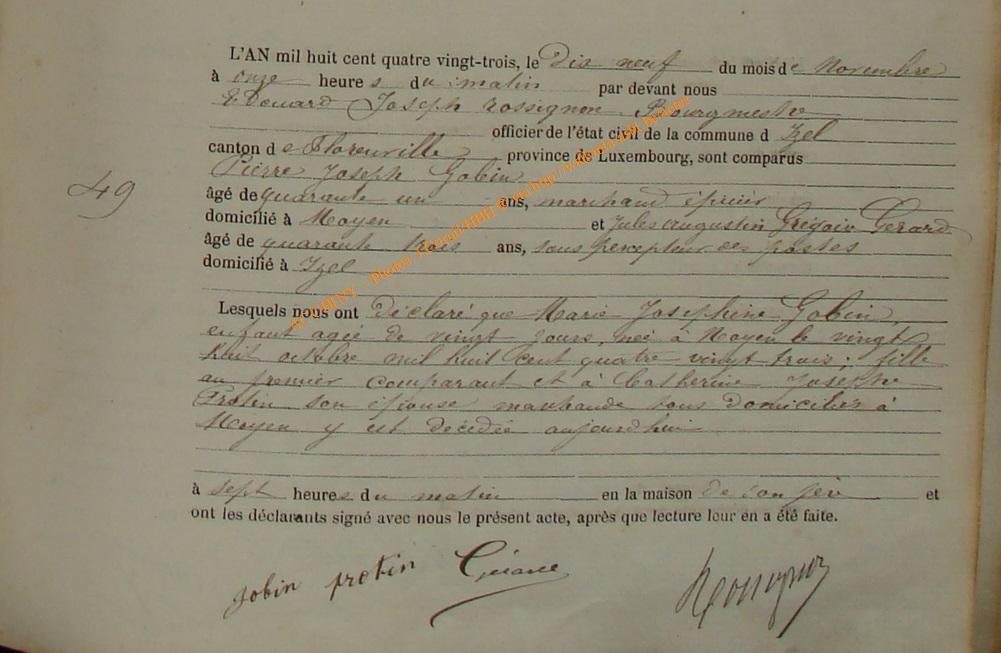 L'AN mil huit cent quatre vingt-trois, le Dix neuf du mois de Novembre
à onze heures du matin par devant nous
Edouard Joseph Rossignon, Bourgmestre
officier de l'état civil de la commune d Izel
canton de Florenville province de Luxembourg, sont comparus
Pierre Joseph Gobin
49
âgé de quarante un ans, marchand épicier
domicilié à Moyen et Jules Augustin Grégoire Gerard
âgé de quarante trois ans, sous percepteur des postes
domicilié à Izel
Lesquels nous ont déclaré que Marie Joséphine Gobin,
enfant agée de vingt jours, née à Moyen le vingt
huit octobre mil huit cent quatre vingt trois; fille
au premier comparant et à Catherine Josephe
Protin son épouse marchande tous domiciliés à
Moyen y est décédée aujourd'hui
à sept heures du matin en la maison de son père et
ont les déclarants signé avec nous le présent acte, après que lecture leur en a été faite.
gobin protin Gérard Rossignon